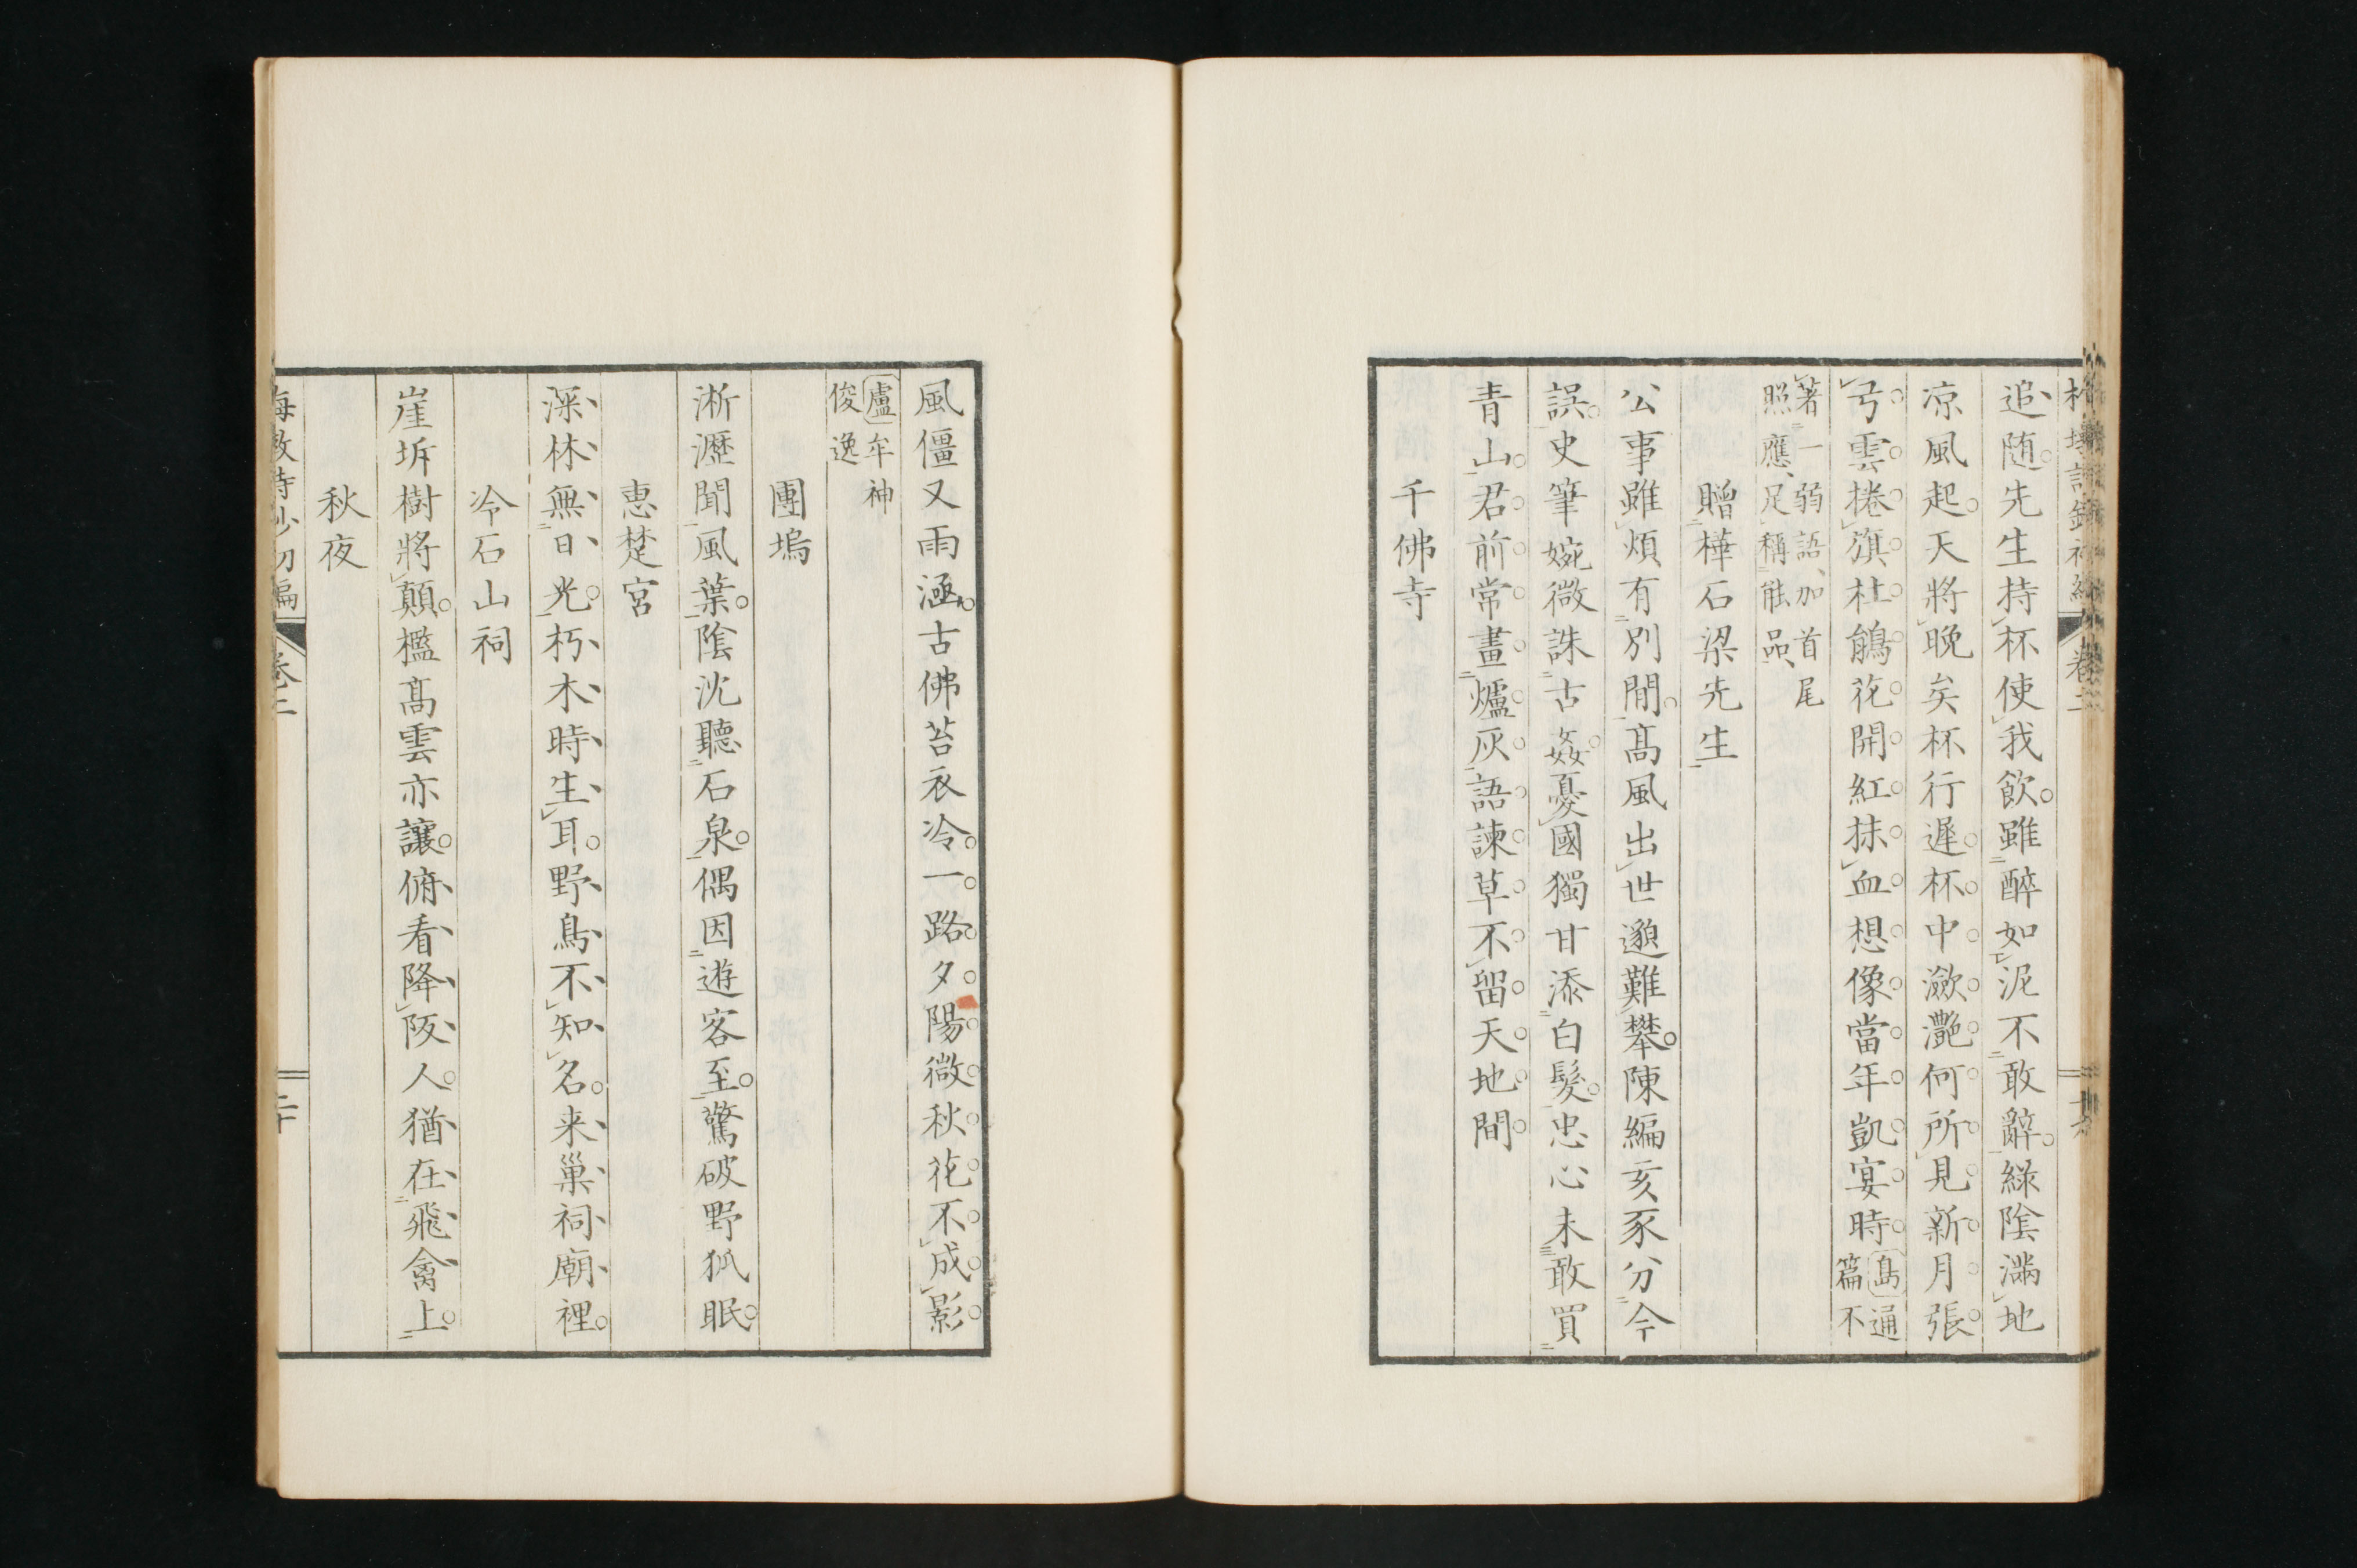 追随先生持杯使我飲雖醉如泥不敢辭緑陰滿地
凉風起天將晩矣杯行遲杯中瀲灔何所見新月張
弓雲捲旗杜鵑花開紅抹血想像當年凱宴時
島通
篇不
著一弱語加首尾
照應足稱能品
贈樺石梁先生
公事雖煩有別閒髙風出世邈難攀陳編亥豕分今
誤史筆婉微誅古姦憂國獨甘添白髮忠心未敢買
青山君前常畫爐灰語諫草不留天地間
千佛寺
風僵又雨涵古佛苔衣冷一路夕陽微秋花不成影
盧牟神
俊逸
團塢
淅瀝聞風葉陰沈聽石泉偶因遊客至驚破野狐眠
恵楚宮
深林無日光朽木時生耳野鳥不知名来巢祠廟裡
冷石山祠
崖坼樹將顛檻髙雲亦讓俯看降阪人猶在飛禽上
秋夜
卷二
二十